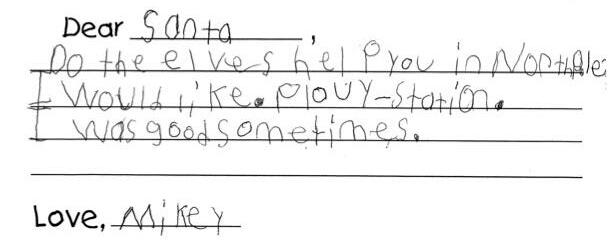 Dear Santa,
Do the elves help you in North
I Would like. PlaUY-Station.
I was good sometimes.
Love, Mikey